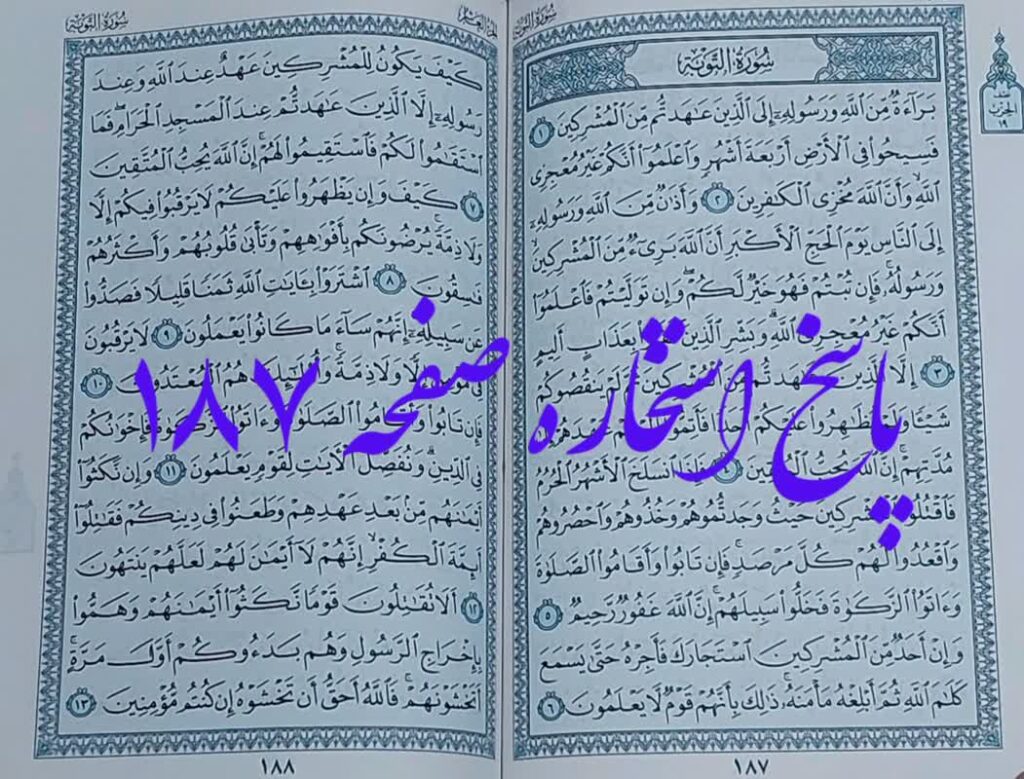 سُورَةُ التَّوْبَةِ
بَرَآءَةٌ مِّنَ ٱللَّهِ وَرَسُولِهِۦٓ إِلَى ٱلَّذِينَ عَٰهَدتُّم مِّنَ ٱلْمُشْرِكِينَ ١
فَسِيحُوا۟ فِى ٱلْأَرْضِ أَرْبَعَةَ أَشْهُرٍ وَٱعْلَمُوٓا۟ أَنَّكُمْ غَيْرُ مُعْجِزِى
ٱللَّهِ وَأَنَّ ٱللَّهَ مُخْزِى ٱلْكَٰفِرِينَ ٢ وَأَذَٰنٌ مِّنَ ٱللَّهِ وَرَسُولِهِۦٓ
إِلَى ٱلنَّاسِ يَوْمَ ٱلْحَجِّ ٱلْأَكْبَرِ أَنَّ ٱللَّهَ بَرِىٓءٌ مِّنَ ٱلْمُشْرِكِينَ
وَرَسُولُهُۥ فَإِن تُبْتُمْ فَهُوَ خَيْرٌ لَّكُمْ وَإِن تَوَلَّيْتُمْ فَٱعْلَمُوٓا۟
أَنَّكُمْ غَيْرُ مُعْجِزِى ٱللَّهِ وَبَشِّرِ ٱلَّذِينَ كَفَرُوا۟ بِعَذَابٍ أَلِيمٍ
٣ إِلَّا ٱلَّذِينَ عَٰهَدتُّم مِّنَ ٱلْمُشْرِكِينَ ثُمَّ لَمْ يَنقُصُوكُمْ
شَيْـًٔا وَلَمْ يُظَٰهِرُوا۟ عَلَيْكُمْ أَحَدًا فَأَتِمُّوٓا۟ إِلَيْهِمْ عَهْدَهُمْ إِلَىٰ
مُدَّتِهِمْ إِنَّ ٱللَّهَ يُحِبُّ ٱلْمُتَّقِينَ ٤ فَإِذَا ٱنسَلَخَ ٱلْأَشْهُرُ ٱلْحُرُمُ
فَٱقْتُلُوا۟ ٱلْمُشْرِكِينَ حَيْثُ وَجَدتُّمُوهُمْ وَخُذُوهُمْ وَٱحْصُرُوهُمْ
وَٱقْعُدُوا۟ لَهُمْ كُلَّ مَرْصَدٍ فَإِن تَابُوا۟ وَأَقَامُوا۟ ٱلصَّلَوٰةَ
وَءَاتَوُا۟ ٱلزَّكَوٰةَ فَخَلُّوا۟ سَبِيلَهُمْ إِنَّ ٱللَّهَ غَفُورٌ رَّحِيمٌ ٥
وَإِنْ أَحَدٌ مِّنَ ٱلْمُشْرِكِينَ ٱسْتَجَارَكَ فَأَجِرْهُ حَتَّىٰ يَسْمَعَ
كَلَٰمَ ٱللَّهِ ثُمَّ أَبْلِغْهُ مَأْمَنَهُۥ ذَٰلِكَ بِأَنَّهُمْ قَوْمٌ لَّا يَعْلَمُونَ ٦
١٨٧
سُورَةُ التَّوْبَةِ
كَيْفَ يَكُونُ لِلْمُشْرِكِينَ عَهْدٌ عِندَ ٱللَّهِ وَعِندَ
رَسُولِهِۦٓ إِلَّا ٱلَّذِينَ عَٰهَدتُّمْ عِندَ ٱلْمَسْجِدِ ٱلْحَرَامِ فَمَا
ٱسْتَقَٰمُوا۟ لَكُمْ فَٱسْتَقِيمُوا۟ لَهُمْ إِنَّ ٱللَّهَ يُحِبُّ ٱلْمُتَّقِينَ
٧ كَيْفَ وَإِن يَظْهَرُوا۟ عَلَيْكُمْ لَا يَرْقُبُوا۟ فِيكُمْ إِلًّا
وَلَا ذِمَّةً يُرْضُونَكُم بِأَفْوَٰهِهِمْ وَتَأْبَىٰ قُلُوبُهُمْ وَأَكْثَرُهُمْ
فَٰسِقُونَ ٨ ٱشْتَرَوْا۟ بِـَٔايَٰتِ ٱللَّهِ ثَمَنًا قَلِيلًا فَصَدُّوا۟
عَن سَبِيلِهِۦٓ إِنَّهُمْ سَآءَ مَا كَانُوا۟ يَعْمَلُونَ ٩ لَا يَرْقُبُونَ
فِى مُؤْمِنٍ إِلًّا وَلَا ذِمَّةً وَأُو۟لَٰٓئِكَ هُمُ ٱلْمُعْتَدُونَ ١٠
فَإِن تَابُوا۟ وَأَقَامُوا۟ ٱلصَّلَوٰةَ وَءَاتَوُا۟ ٱلزَّكَوٰةَ فَإِخْوَٰنُكُمْ
فِى ٱلدِّينِ وَنُفَصِّلُ ٱلْـَٔايَٰتِ لِقَوْمٍ يَعْلَمُونَ ١١ وَإِن نَّكَثُوٓا۟
أَيْمَٰنَهُم مِّنۢ بَعْدِ عَهْدِهِمْ وَطَعَنُوا۟ فِى دِينِكُمْ فَقَٰتِلُوٓا۟
أَئِمَّةَ ٱلْكُفْرِ إِنَّهُمْ لَآ أَيْمَٰنَ لَهُمْ لَعَلَّهُمْ يَنتَهُونَ
١٢ أَلَا تُقَٰتِلُونَ قَوْمًا نَّكَثُوٓا۟ أَيْمَٰنَهُمْ وَهَمُّوا۟
بِإِخْرَاجِ ٱلرَّسُولِ وَهُم بَدَءُوكُمْ أَوَّلَ مَرَّةٍ
أَتَخْشَوْنَهُمْ فَٱللَّهُ أَحَقُّ أَن تَخْشَوْهُ إِن كُنتُم مُّؤْمِنِينَ ١٣
١٨٨
پاسخ استخاره صفحه ۱۸۷